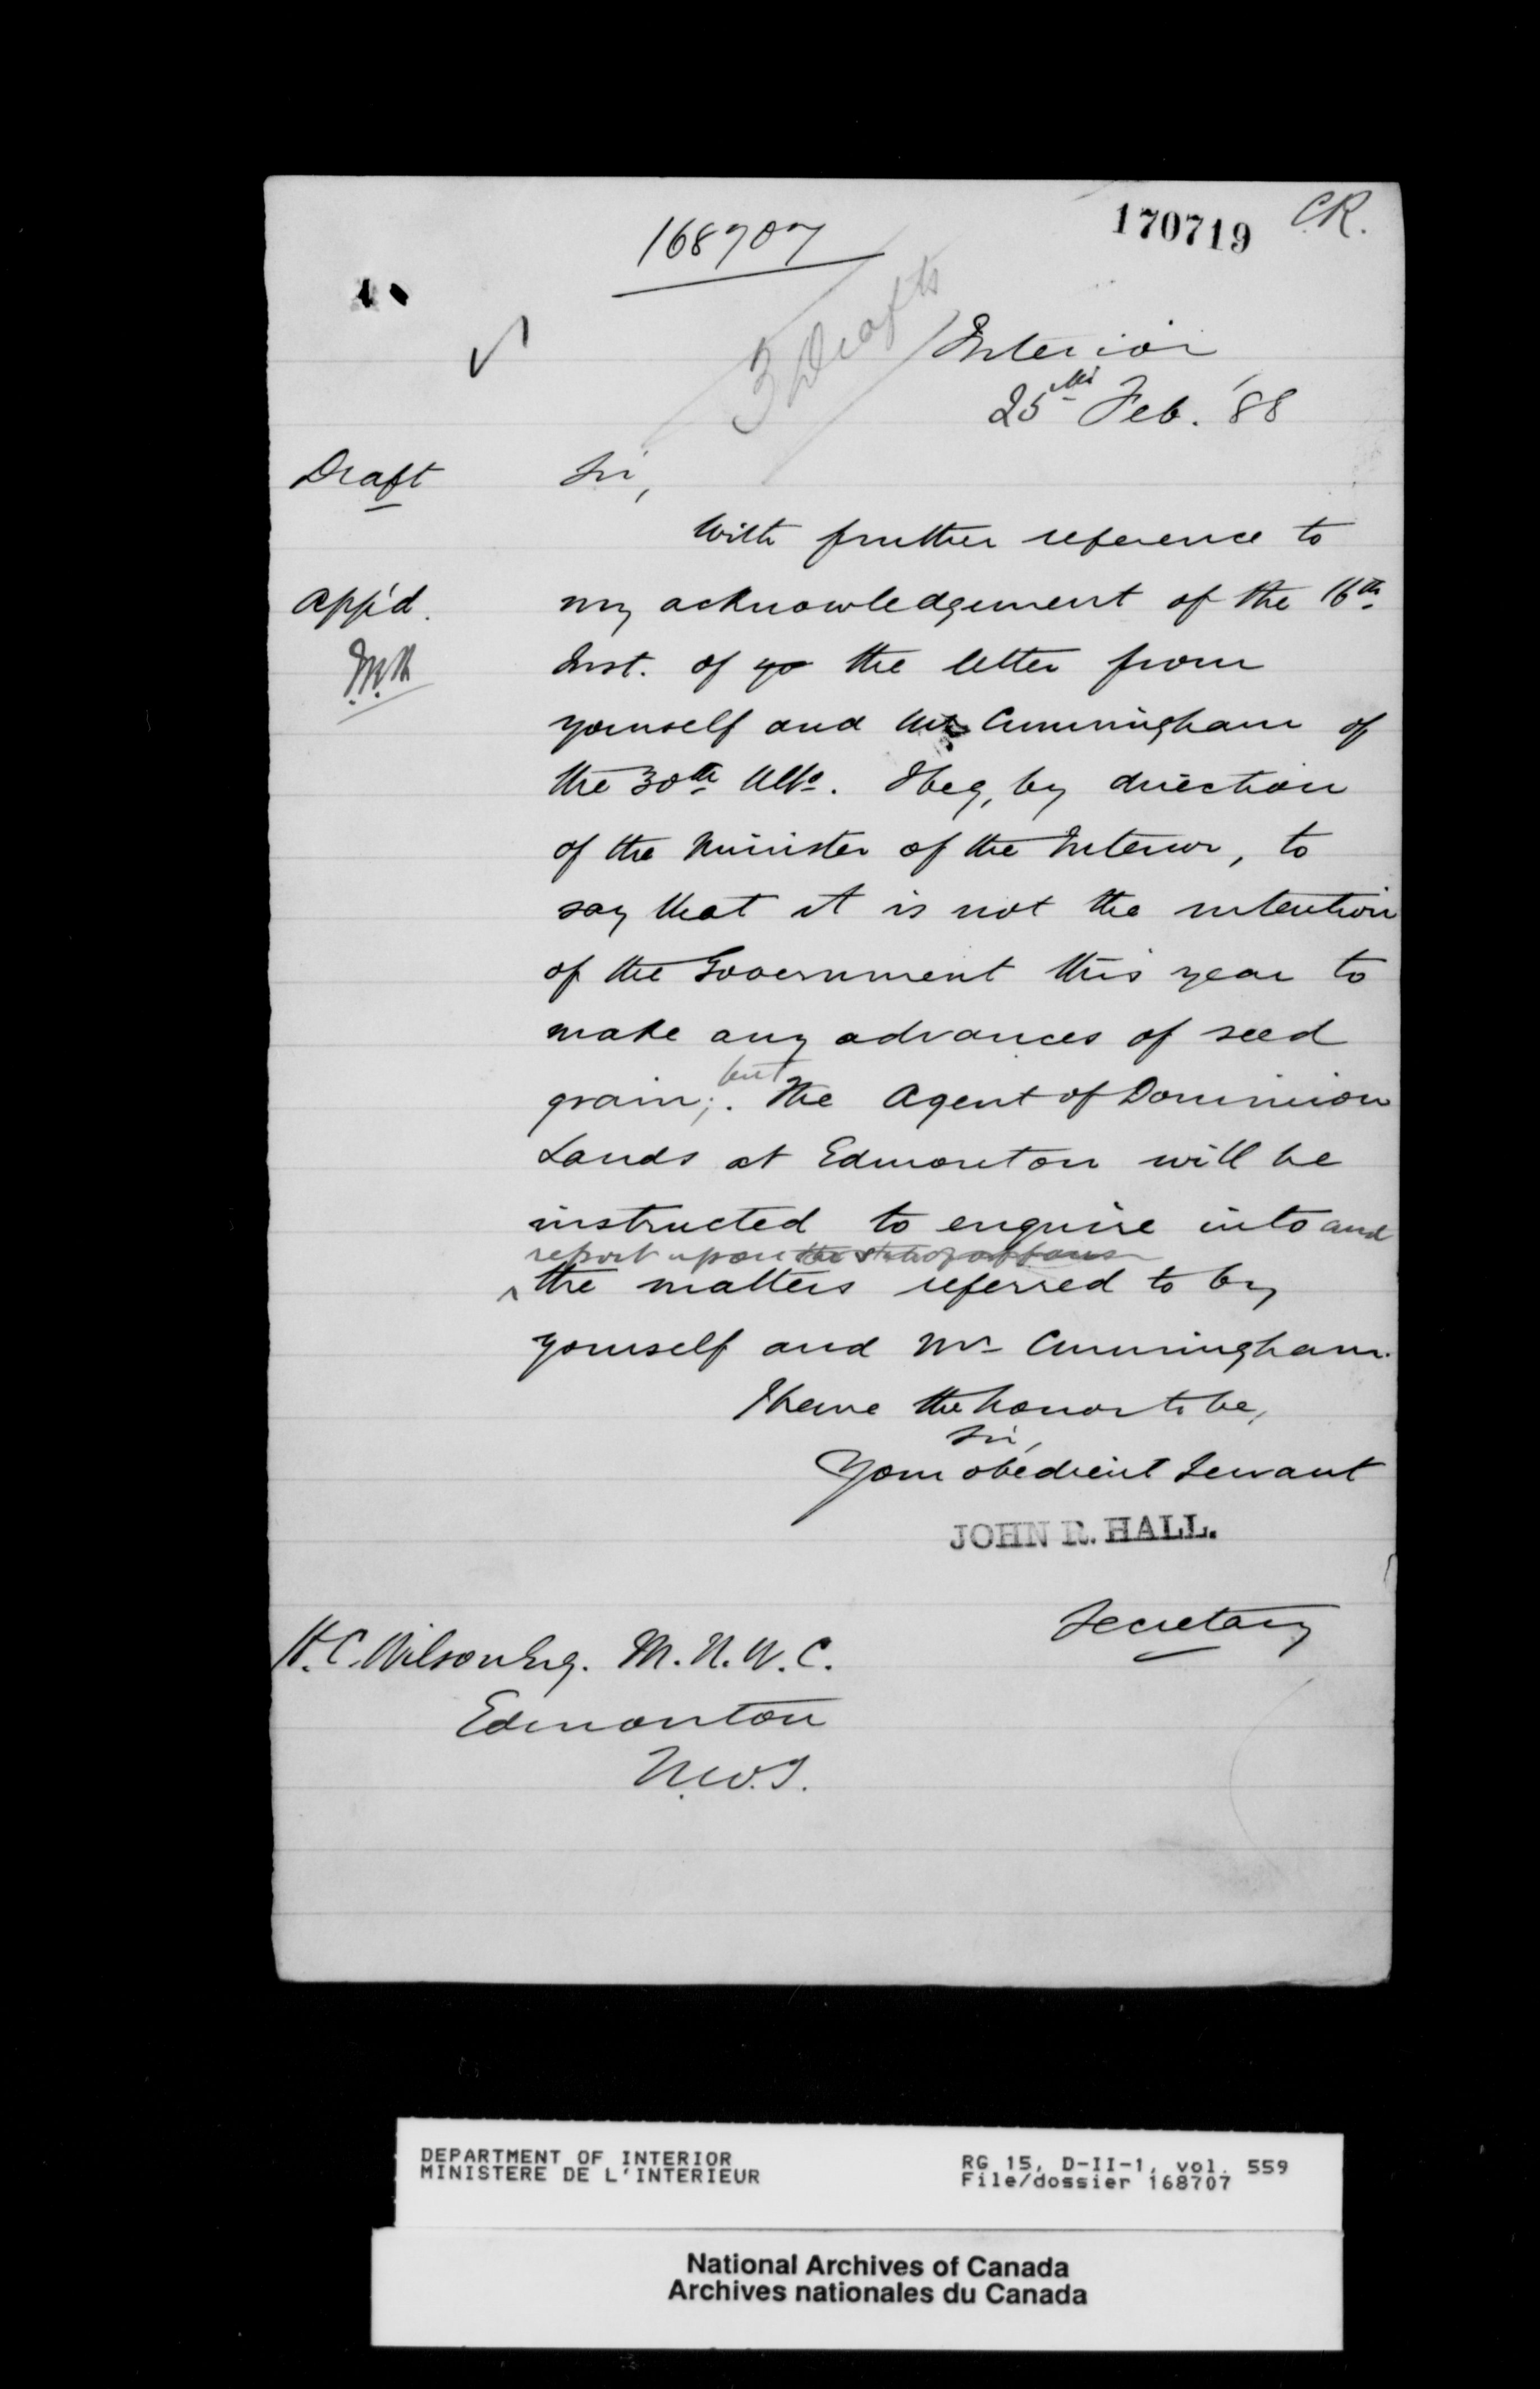 168707
170719 C.R.
3 Drafts
Interior
25th Feb. '88
Draft
Sir,
With further reference to
app'd.
my acknowledgement of the 16th
Inst. of yo the letter from
yourself and Mr Cunningham of
the 30th Ulto. I beg, by direction
of the Minister of the Interior, to
say that it is not the intention
of the Government this year to
make any advances of seed
but
grain; . The Agent of Dominion
Lands at Edmonton will be
instructed to enquire into and
report upon the state of affairs
the matters referred to by
yourself and Mr Cunningham.
I have the honor to be,
Sir,
Your obedient Servant
JOHN R. HALL.
Secretary
H.C. Wilson Esq. M.N.W.C.
Edmonton
N.W.T.
DEPARTMENT OF INTERIOR
MINISTERE DE L'INTERIEUR
RG 15, D-II-1, vol. 559
File/dossier 168707
National Archives of Canada
Archives nationales du Canada